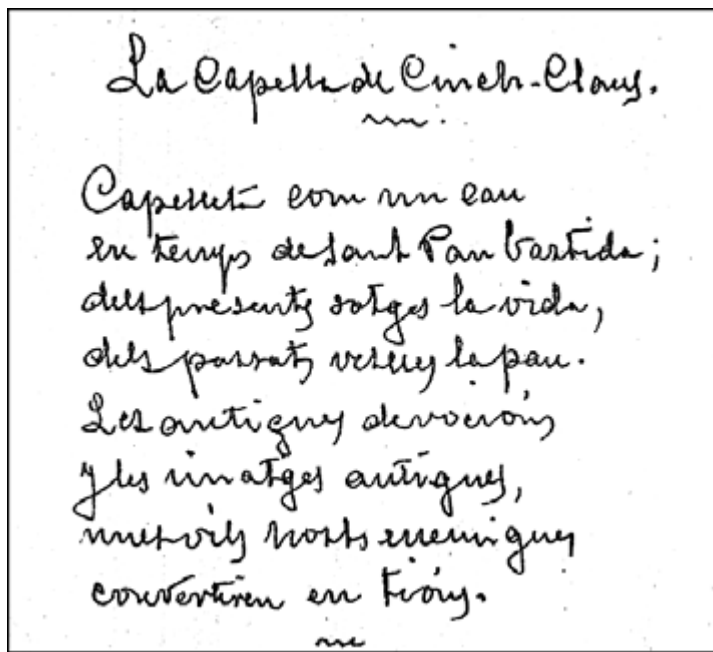 La Capella de Cinch-Claus.
Capelleta com un cau
en temps de Sant Pau bastida;
dels presents sotges la vida,
dels passats vetlles la pau.
Les antigues devocións
y les imatges antigues,
unes vils hosts enemigues
convertiren en tións.